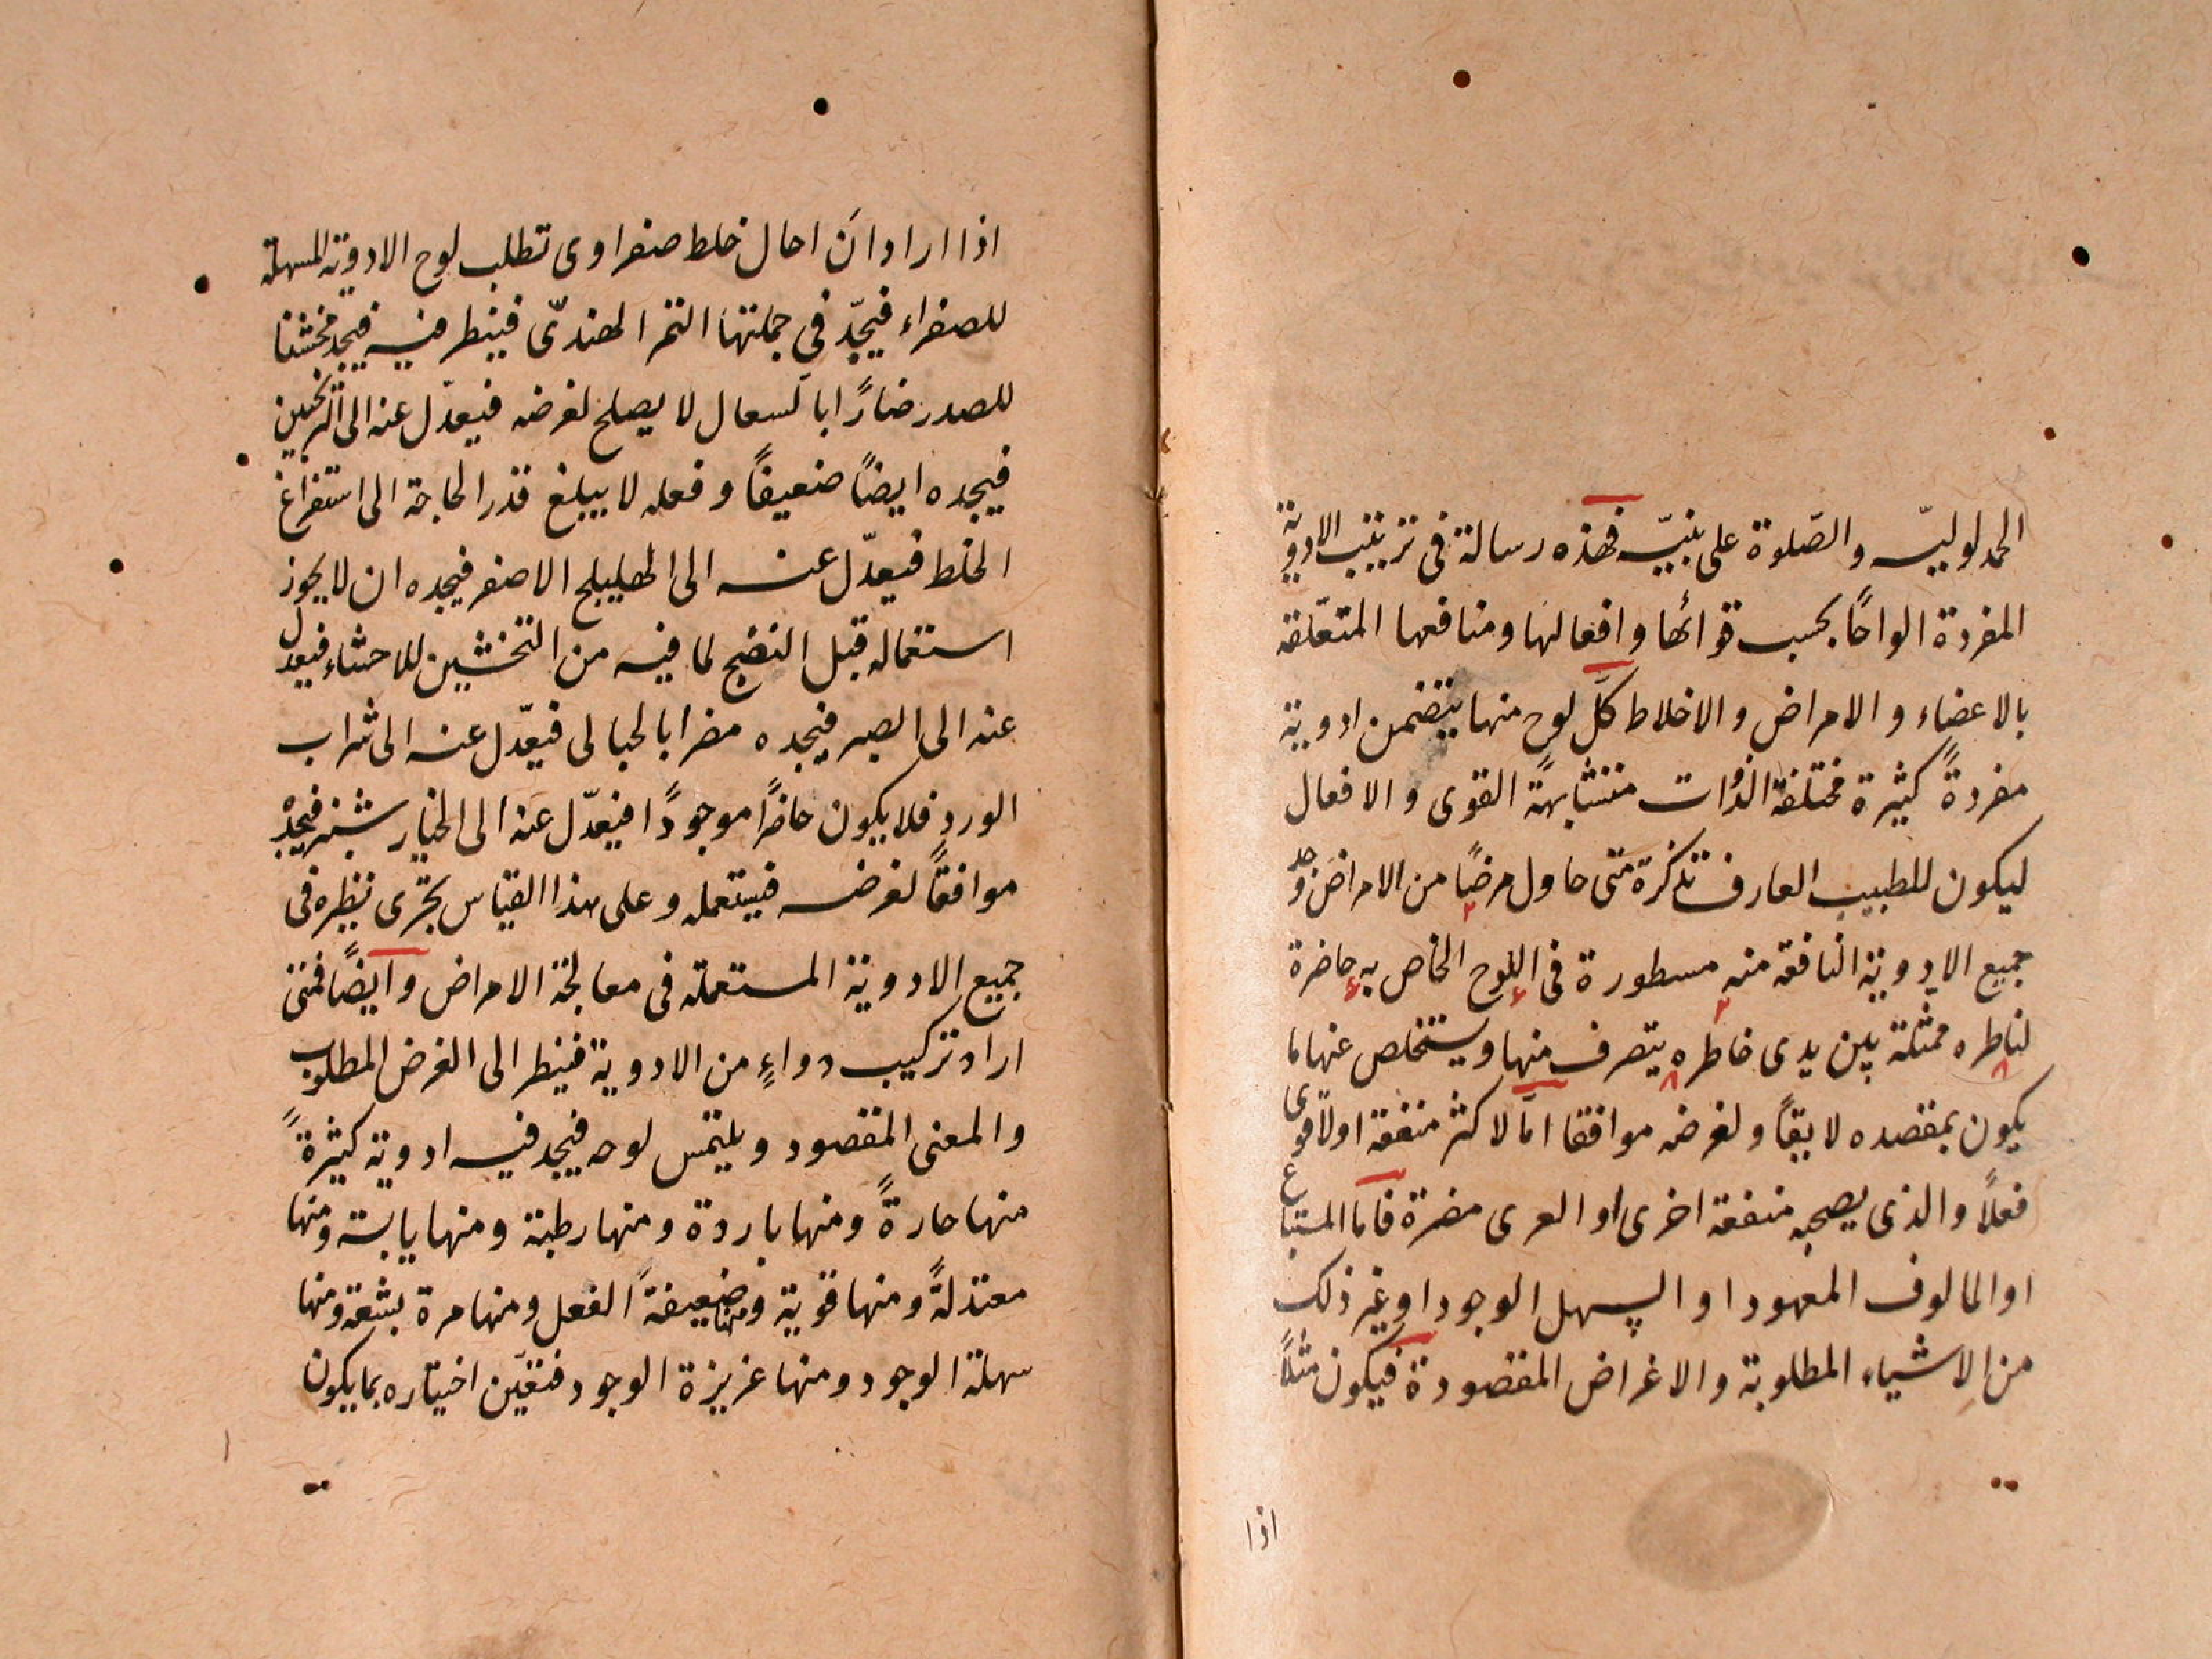 الحمد لوليه والصّلوة على نبيّه فهذه رسالة فى ترتيب الادوية
المفردة الواحًا بحسب قوائها وافعالها ومنافعها المتعلّقة
بالاعضاء والامراض والاخلاط كلّ لوح منها يتضمن ادوية
مفردةً كثيرة مختلفة الذوات متشابهةً القوى والافعال
ليكون للطبيب العارف تذكرة متى حاول مرضًا من الامراض وجد
جميع الادوية النافعة منه مسطورة فى اللوح الخاص به حاضرة
لناطره ممثلة بين يدى خاطره يتصرف منها ويستخلص عنها ما
يكون بمقصده لايقًا ولغرضه موافقا امّا لاكثر منفعة اولاقوى
فعلًا والذى يصحبه منفعة اخرى او العرى مضرة فاما المستباع
او المالوف المعهود او السهل الوجود او غير ذلك
من الاشياء المطلوبة والاغراض المقصودة فيكون مثلًا
اذا
اذا اراد ان احال خلط صفراوى تطلب لوح الادوية المسهلة
للصفراء فيجد فى جملتها التمر الهندىّ فينطر فيه فيجد مخشنا
للصدر ضارًا بالسعال لا يصلح لغرضه فيعدّل عنه الى الترنجبين
فيجده ايضًا ضعيفًا وفعله لا يبلغ قدر الحاجة الى استفراغ
الخلط فيعدّل عنه الى الهليلج الاصفر فيجده ان لا يجوز
استعماله قبل النضج لما فيه من التخشين للاحشاء فيعدل
عنه الى الصبر فيجده مضرا بالحبالى فيعدّل عنه الى شراب
الورد فلا يكون حاضرًا موجودًا فيعدّل عنه الى الخيار شنبر فيجدْ
موافقًا لغرضه فيستعمله وعلى هذا القياس يجرى نظره فى
جميع الادوية المستعملة فى معالجة الامراض وايضًا فمتى
اراد تركيب دواءٍ من الادوية فينطر الى الغرض المطلوب
والمعنى المقصود ويلتمس لوحه فيجد فيه ادوية كثيرةً
منها حارةً ومنها باردة ومنها رطبة ومنها يابسة ومنها
معتدلةً ومنها قوية ومنها ضعيفةً الفعل ومنها مرة بشعة ومنها
سهلة الوجود ومنها عزيزة الوجود فتعيّن اختياره بما يكون